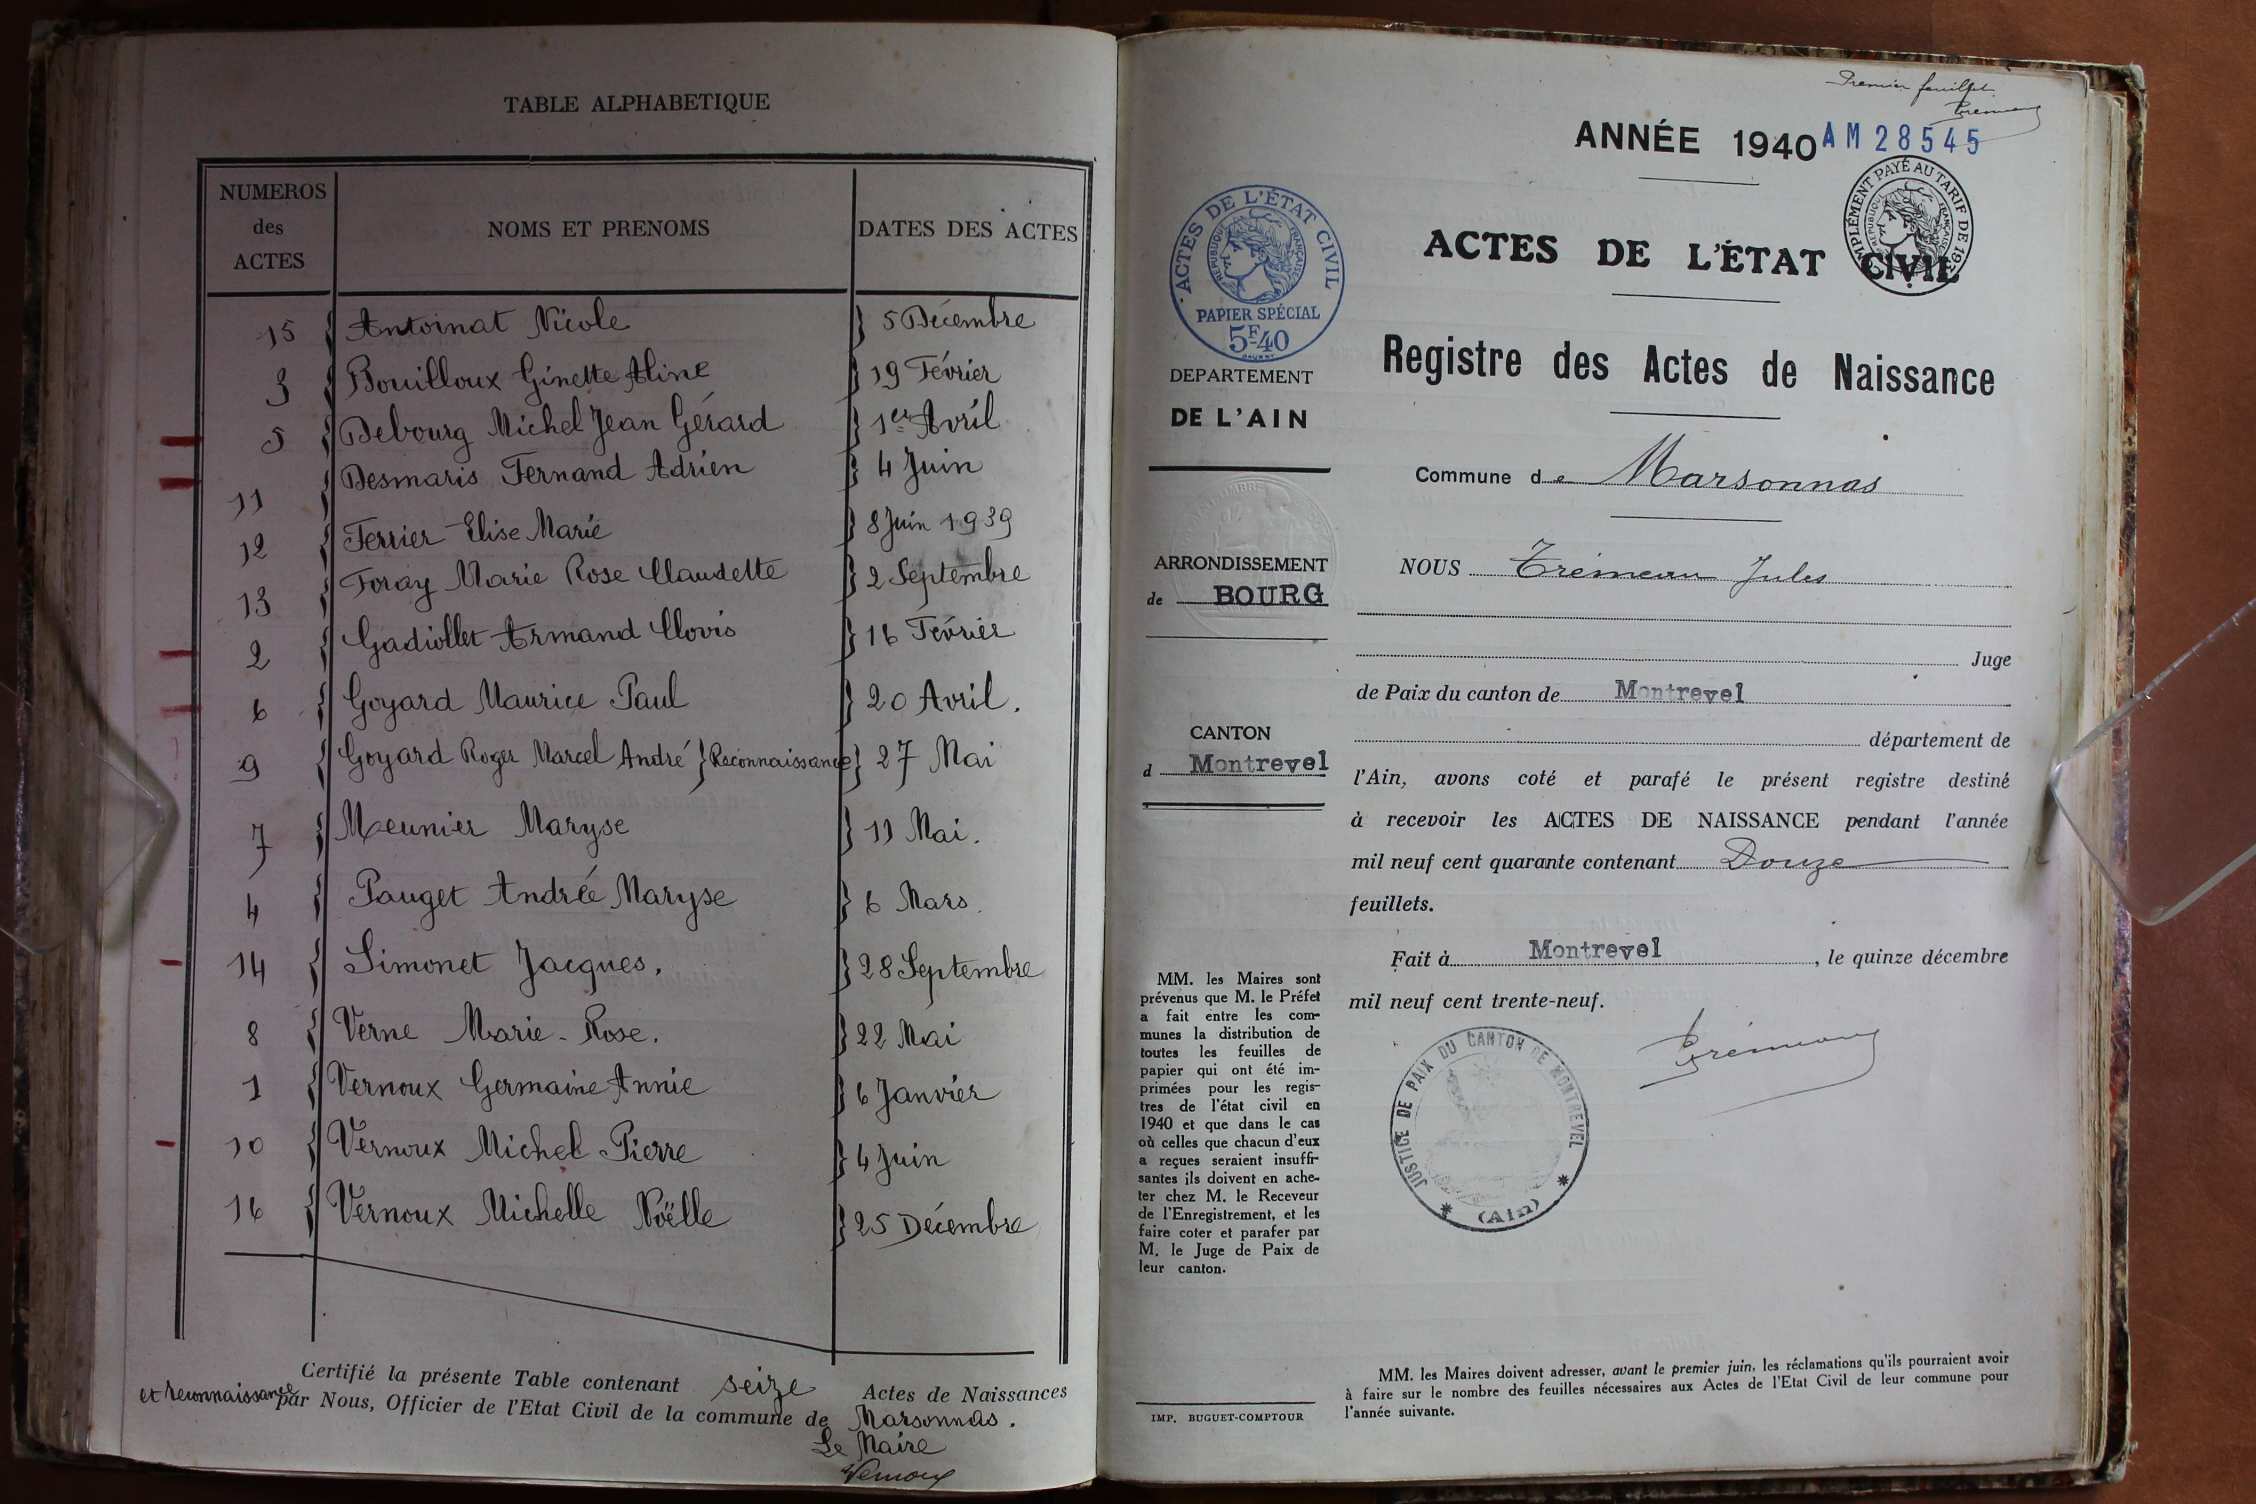 TABLE ALPHABETIQUE
NUMEROS des ACTES | NOMS ET PRENOMS | DATES DES ACTES
15 } Antoinat Nicole } 5 Décembre
3 { Bouilloux Ginette Aline } 19 Février
5 { Debourg Michel Jean Gérard } 1er Avril
11 { Desmaris Fernand Adrien } 4 Juin
12 { Ferrier Elise Marie } 8 Juin 1939
13 { Foray Marie Rose Claudette } 2 Septembre
2 { Gadiollet Armand Clovis } 16 Février
6 { Goyard Maurice Paul } 20 Avril.
9 { Goyard Roger Marcel André } Reconnaissance } 27 Mai
7 } Meunier Maryse } 11 Mai.
4 } Pauget Andrée Maryse } 6 Mars.
14 { Simonet Jacques. } 28 Septembre
8 { Verne Marie-Rose. } 22 Mai
1 { Vernoux Germaine Annie } 6 Janvier
10 { Vernoux Michel Pierre } 4 Juin
16 { Vernoux Michelle Noëlle } 25 Décembre
Certifié la présente Table contenant seize Actes de Naissances
et reconnaissance par Nous, Officier de l'Etat Civil de la commune de Marsonnas.
Le Maire
Vernoux
Premier feuillet
Trémeau
ANNÉE 1940
AM 28545
SUPPLÉMENT PAYÉ AU TARIF DE 193
RÉPUBLIQUE FRANÇAISE
ACTES DE L'ÉTAT CIVIL
RÉPUBLIQUE FRANÇAISE
PAPIER SPÉCIAL
5F40
ACTES DE L'ÉTAT CIVIL
Registre des Actes de Naissance
DEPARTEMENT
DE L'AIN
ARRONDISSEMENT
de BOURG
CANTON
d Montrevel
MM. les Maires sont
prévenus que M. le Préfet
a fait entre les com-
munes la distribution de
toutes les feuilles de
papier qui ont été im-
primées pour les regis-
tres de l'état civil en
1940 et que dans le cas
où celles que chacun d'eux
a reçues seraient insuffi-
santes ils doivent en ache-
ter chez M. le Receveur
de l'Enregistrement, et les
faire coter et parafer par
M. le Juge de Paix de
leur canton.
IMP. BUGUET-COMPTOUR
Commune de Marsonnas
NOUS Trémeau Jules
Juge
de Paix du canton de Montrevel
département de
l'Ain, avons coté et parafé le présent registre destiné
à recevoir les ACTES DE NAISSANCE pendant l'année
mil neuf cent quarante contenant Douze
feuillets.
Fait à Montrevel, le quinze décembre
mil neuf cent trente-neuf.
Trémeau
JUSTICE DE PAIX DU CANTON DE MONTREVEL
* (Ain) *
MM. les Maires doivent adresser, avant le premier juin, les réclamations qu'ils pourraient avoir
à faire sur le nombre des feuilles nécessaires aux Actes de l'Etat Civil de leur commune pour
l'année suivante.